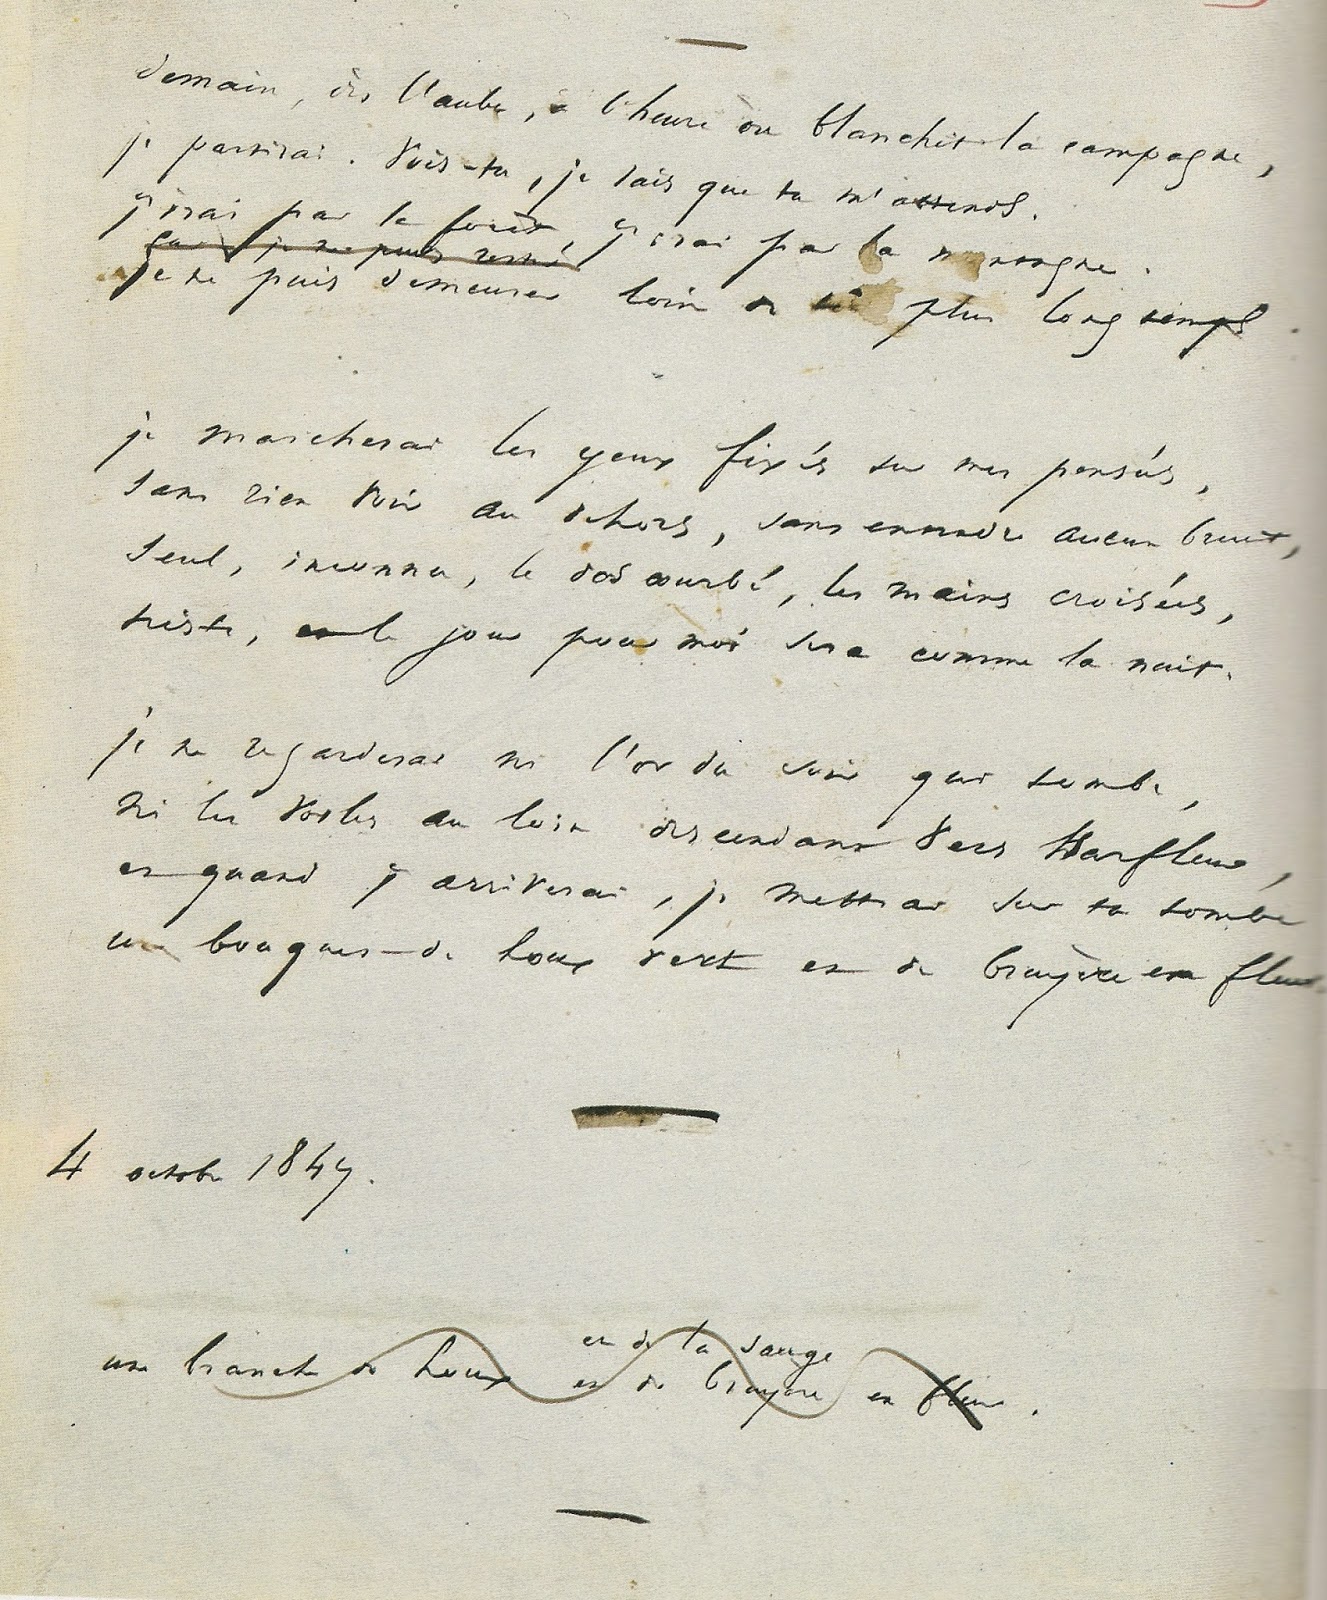 demain, dès l'aube, à l'heure où blanchit la campagne,
je partirai. Vois-tu, je sais que tu m'attends.
j'irai par la forêt, j'irai par la montagne.
car je ne puis rester
je ne puis demeurer loin de toi plus longtemps.
je marcherai les yeux fixés sur mes pensées,
sans rien voir au dehors, sans entendre aucun bruit,
seul, inconnu, le dos courbé, les mains croisées,
triste, et le jour pour moi sera comme la nuit.
je ne regarderai ni l'or du soir qui tombe,
ni les voiles au loin descendant vers Harfleur,
et quand j'arriverai, je mettrai sur ta tombe
un bouquet de houx vert et de bruyère en fleur.
4 octobre 1847.
et de la sauge
une branche de houx et de bruyère en fleur.